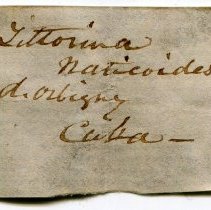 Littorina
Naticoides
d. orbigny
Cuba —